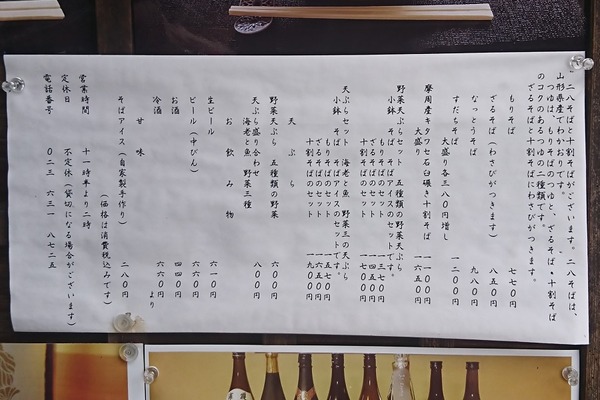 二八そばと十割そばがございます。二八そばは、
山形県産でわかおりです。
つゆは、もりそばのつゆと、ざるそば・十割そば
のコクのあるつゆの二種類です。
ざるそばと十割そばにわさびがつきます。
もりそば 七七〇円
ざるそば(わさびがつきます) 八五〇円
なっとうそば 九八〇円
すだちそば 一二〇〇円
大盛り各三八〇円増し
摩周産キタワセ石臼碾き十割そば 一一〇〇円
大盛り 一六五〇円
野菜天ぷらセット 五種類の野菜天ぷら
小鉢 そば そばアイスのセットです。
もりそばのセット 一三七〇円
ざるそばのセット 一四五〇円
十割そばのセット 一七〇〇円
天ぷらセット 海老と魚 野菜三の天ぷら
小鉢 そば そばアイスのセットです。
もりそばのセット 一五七〇円
ざるそばのセット 一六五〇円
十割そばのセット 一九〇〇円
天ぷら
野菜天ぷら 五種類の野菜 六〇〇円
天ぷら盛り合わせ
海老と魚 野菜三種 八〇〇円
お飲み物
生ビール 六一〇円
ビール(中びん) 六六〇円
お酒 四四〇円
冷酒 六六〇円より
甘味
そばアイス(自家製手作り) 二八〇円
(価格は消費税込みです)
営業時間 十一時半より二時
定休日 不定休(貸切になる場合がございます)
電話番号 〇二三 六三一 八七二五